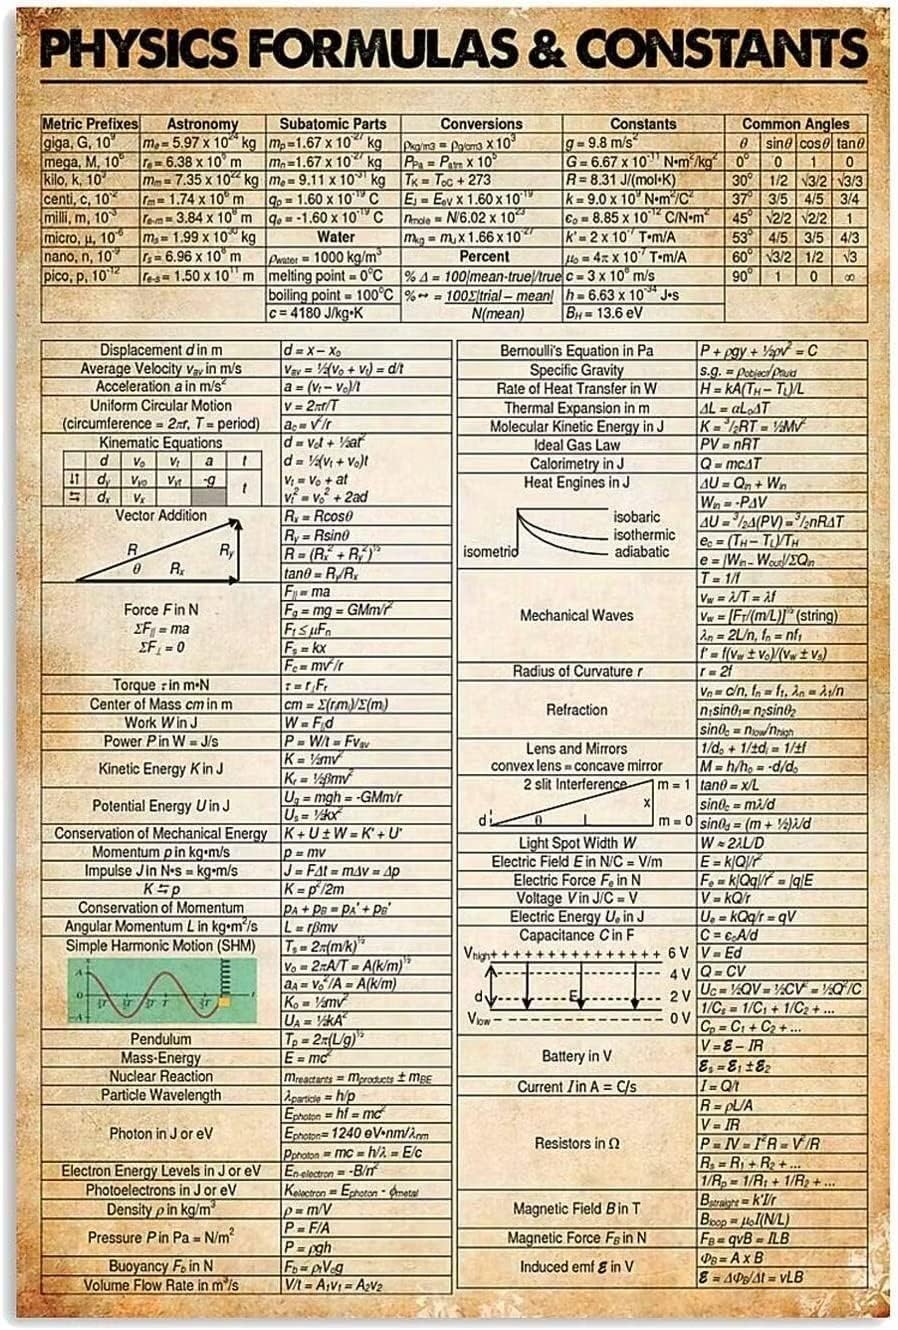 PHYSICS FORMULAS & CONSTANTS
Metric Prefixes Astronomy Subatomic Parts Conversions Constants Common Angles
giga, G, 10⁹ mₑ = 5.97 x 10²⁴ kg mₚ=1.67 x 10⁻²⁷ kg ρkg/m3 = ρg/cm3 x 10³ g = 9.8 m/s² θ sinθ cosθ tanθ
mega, M, 10⁶ rₑ = 6.38 x 10⁶ m mₙ=1.67 x 10⁻²⁷ kg PPa = Patm x 10⁵ G = 6.67 x 10⁻¹¹ N•m²/kg² 0° 0 1 0
kilo, k, 10³ mₘ = 7.35 x 10²² kg mₑ = 9.11 x 10⁻³¹ kg TK = ToC + 273 R = 8.31 J/(mol•K) 30° 1/2 √3/2 √3/3
centi, c, 10⁻² rₘ = 1.74 x 10⁶ m qₚ = 1.60 x 10⁻¹⁹ C EJ = EeV x 1.60 x 10⁻¹⁹ k = 9.0 x 10⁹ N•m²/C² 37° 3/5 4/5 3/4
milli, m, 10⁻³ re-m = 3.84 x 10⁸ m qₑ = -1.60 x 10⁻¹⁹ C nmole = N/6.02 x 10²³ ϵ₀ = 8.85 x 10⁻¹² C/N•m² 45° √2/2 √2/2 1
micro, μ, 10⁻⁶ mₛ = 1.99 x 10³⁰ kg Water mkg = mu x 1.66 x 10⁻²⁷ k' = 2 x 10⁻⁷ T•m/A 53° 4/5 3/5 4/3
nano, n, 10⁻⁹ rₛ = 6.96 x 10⁸ m ρwater = 1000 kg/m³ Percent μ₀ = 4π x 10⁻⁷ T•m/A 60° √3/2 1/2 √3
pico, p, 10⁻¹² re-s = 1.50 x 10¹¹ m melting point = 0°C % Δ = 100|mean-true|/true c = 3 x 10⁸ m/s 90° 1 0 ∞
boiling point = 100°C %↔ = 100Σ|trial – mean| h = 6.63 x 10⁻³⁴ J•s
c = 4180 J/kg•K N(mean) BH = 13.6 eV
Displacement d in m d = x – x₀
Average Velocity vav in m/s vav = ½(v₀ + vt) = d/t
Acceleration a in m/s² a = (vt – v₀)/t
Uniform Circular Motion v = 2πr/T
(circumference = 2πr, T = period) ac = v²/r
Kinematic Equations d = v₀t + ½at²
d v₀ vt a t d = ½(vt + v₀)t
↓↑ dy vyo vyt -g t vt = v₀ + at
⇆ dx vx vt² = v₀² + 2ad
Vector Addition Rx = Rcosθ
Ry = Rsinθ
R Ry R = (Rx² + Ry²)^½
θ Rx tanθ = Ry/Rx
F|| = ma
Force F in N Fg = mg = GMm/r²
ΣF|| = ma Ff ≤ μFn
ΣF⊥ = 0 Fs = kx
Fc = mv²/r
Torque τ in m•N τ = r⊥Fr
Center of Mass cm in m cm = Σ(rᵢmᵢ)/Σ(mᵢ)
Work W in J W = F||d
Power P in W = J/s P = W/t = Fvav
Kinetic Energy K in J K = ½mv²
Kr = ½βmv²
Potential Energy U in J Ug = mgh = -GMm/r
Us = ½kx²
Conservation of Mechanical Energy K + U ± W = K' + U'
Momentum p in kg•m/s p = mv
Impulse J in N•s = kg•m/s J = FΔt = mΔv = Δp
K ⇆ p K = p²/2m
Conservation of Momentum pA + pB = pA' + pB'
Angular Momentum L in kg•m²/s L = rβmv
Simple Harmonic Motion (SHM) Ts = 2π(m/k)^½
v₀ = 2πA/T = A(k/m)^½
aA = v₀²/A = A(k/m)
K₀ = ½mv²
UA = ½kA²
Pendulum Tp = 2π(L/g)^½
Mass-Energy E = mc²
Nuclear Reaction mreactants = mproducts ± mBE
Particle Wavelength λparticle = h/p
Ephoton = hf = mc²
Photon in J or eV Ephoton = 1240 eV•nm/λnm
pphoton = mc = h/λ = E/c
Electron Energy Levels in J or eV En-electron = -B/n²
Photoelectrons in J or eV Kelectron = Ephoton - ϕmetal
Density ρ in kg/m³ ρ = m/V
Pressure P in Pa = N/m² P = F/A
P = ρgh
Buoyancy Fb in N Fb = ρfVog
Volume Flow Rate in m³/s V/t = A₁v₁ = A₂v₂
Bernoulli's Equation in Pa P + ρgy + ½ρv² = C
Specific Gravity s.g. = ρobject/ρfluid
Rate of Heat Transfer in W H = kA(TH – TL)/L
Thermal Expansion in m ΔL = αL₀ΔT
Molecular Kinetic Energy in J K = ³/₂RT = ½Mv²
Ideal Gas Law PV = nRT
Calorimetry in J Q = mcΔT
Heat Engines in J ΔU = Qin + Win
Win = -PΔV
isobaric ΔU = ³/₂Δ(PV) = ³/₂nRΔT
isothermic ec = (TH – TL)/TH
isometric adiabatic e = |Win – Wout|/ΣQin
T = 1/f
vw = λ/T = λf
Mechanical Waves vw = [FT/(m/L)]^½ (string)
λn = 2L/n, fn = nf₁
f' = f(vw ± vo)/(vw ± vs)
Radius of Curvature r r = 2f
vn = c/n, fn = f₁, λn = λ₁/n
Refraction n₁sinθ₁ = n₂sinθ₂
sinθc = nlow/nhigh
Lens and Mirrors 1/do + 1/±di = 1/±f
convex lens = concave mirror M = hi/ho = -di/do
2 slit Interference m = 1 tanθ = x/L
x sinθc = mλ/d
d θ L m = 0 sinθd = (m + ½)λ/d
Light Spot Width W W ≈ 2λL/D
Electric Field E in N/C = V/m E = k|Q|/r²
Electric Force Fe in N Fe = k|Qq|/r² = |q|E
Voltage V in J/C = V V = kQ/r
Electric Energy Ue in J Ue = kQq/r = qV
Capacitance C in F C = ϵ₀A/d
Vhigh + + + + + + + + + + + + + + + 6 V V = Ed
4 V Q = CV
d E 2 V UC = ½QV = ½CV² = ½Q²/C
Vlow 0 V 1/Cs = 1/C₁ + 1/C₂ + ...
Cp = C₁ + C₂ + ...
Battery in V V = ℰ – IR
ℰs = ℰ₁ ± ℰ₂
Current I in A = C/s I = Q/t
R = ρL/A
V = IR
Resistors in Ω P = IV = I²R = V²/R
Rs = R₁ + R₂ + ...
1/Rp = 1/R₁ + 1/R₂ + ...
Magnetic Field B in T Bstraight = k'I/r
Bloop = μ₀I(N/L)
Magnetic Force FB in N FB = qvB = ILB
Induced emf ℰ in V ΦB = A x B
ℰ = ΔΦB/Δt = vLB